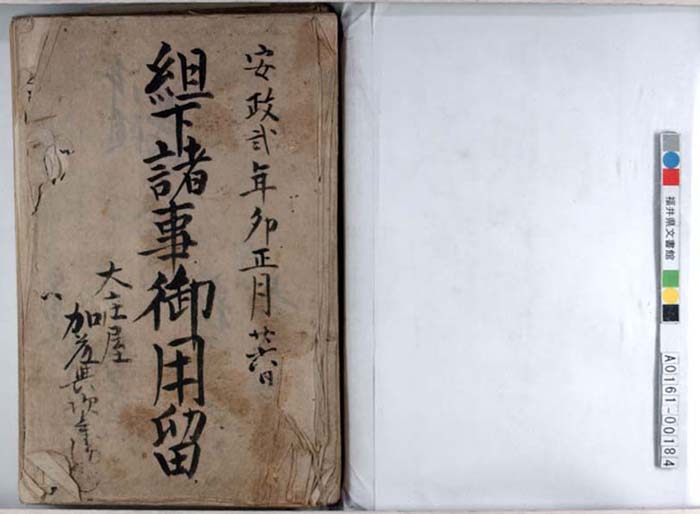 安政弐年卯正月廿六日
組下諸事御用留
大庄屋
加藤與次兵衛
福井県文書館
A0161-00184